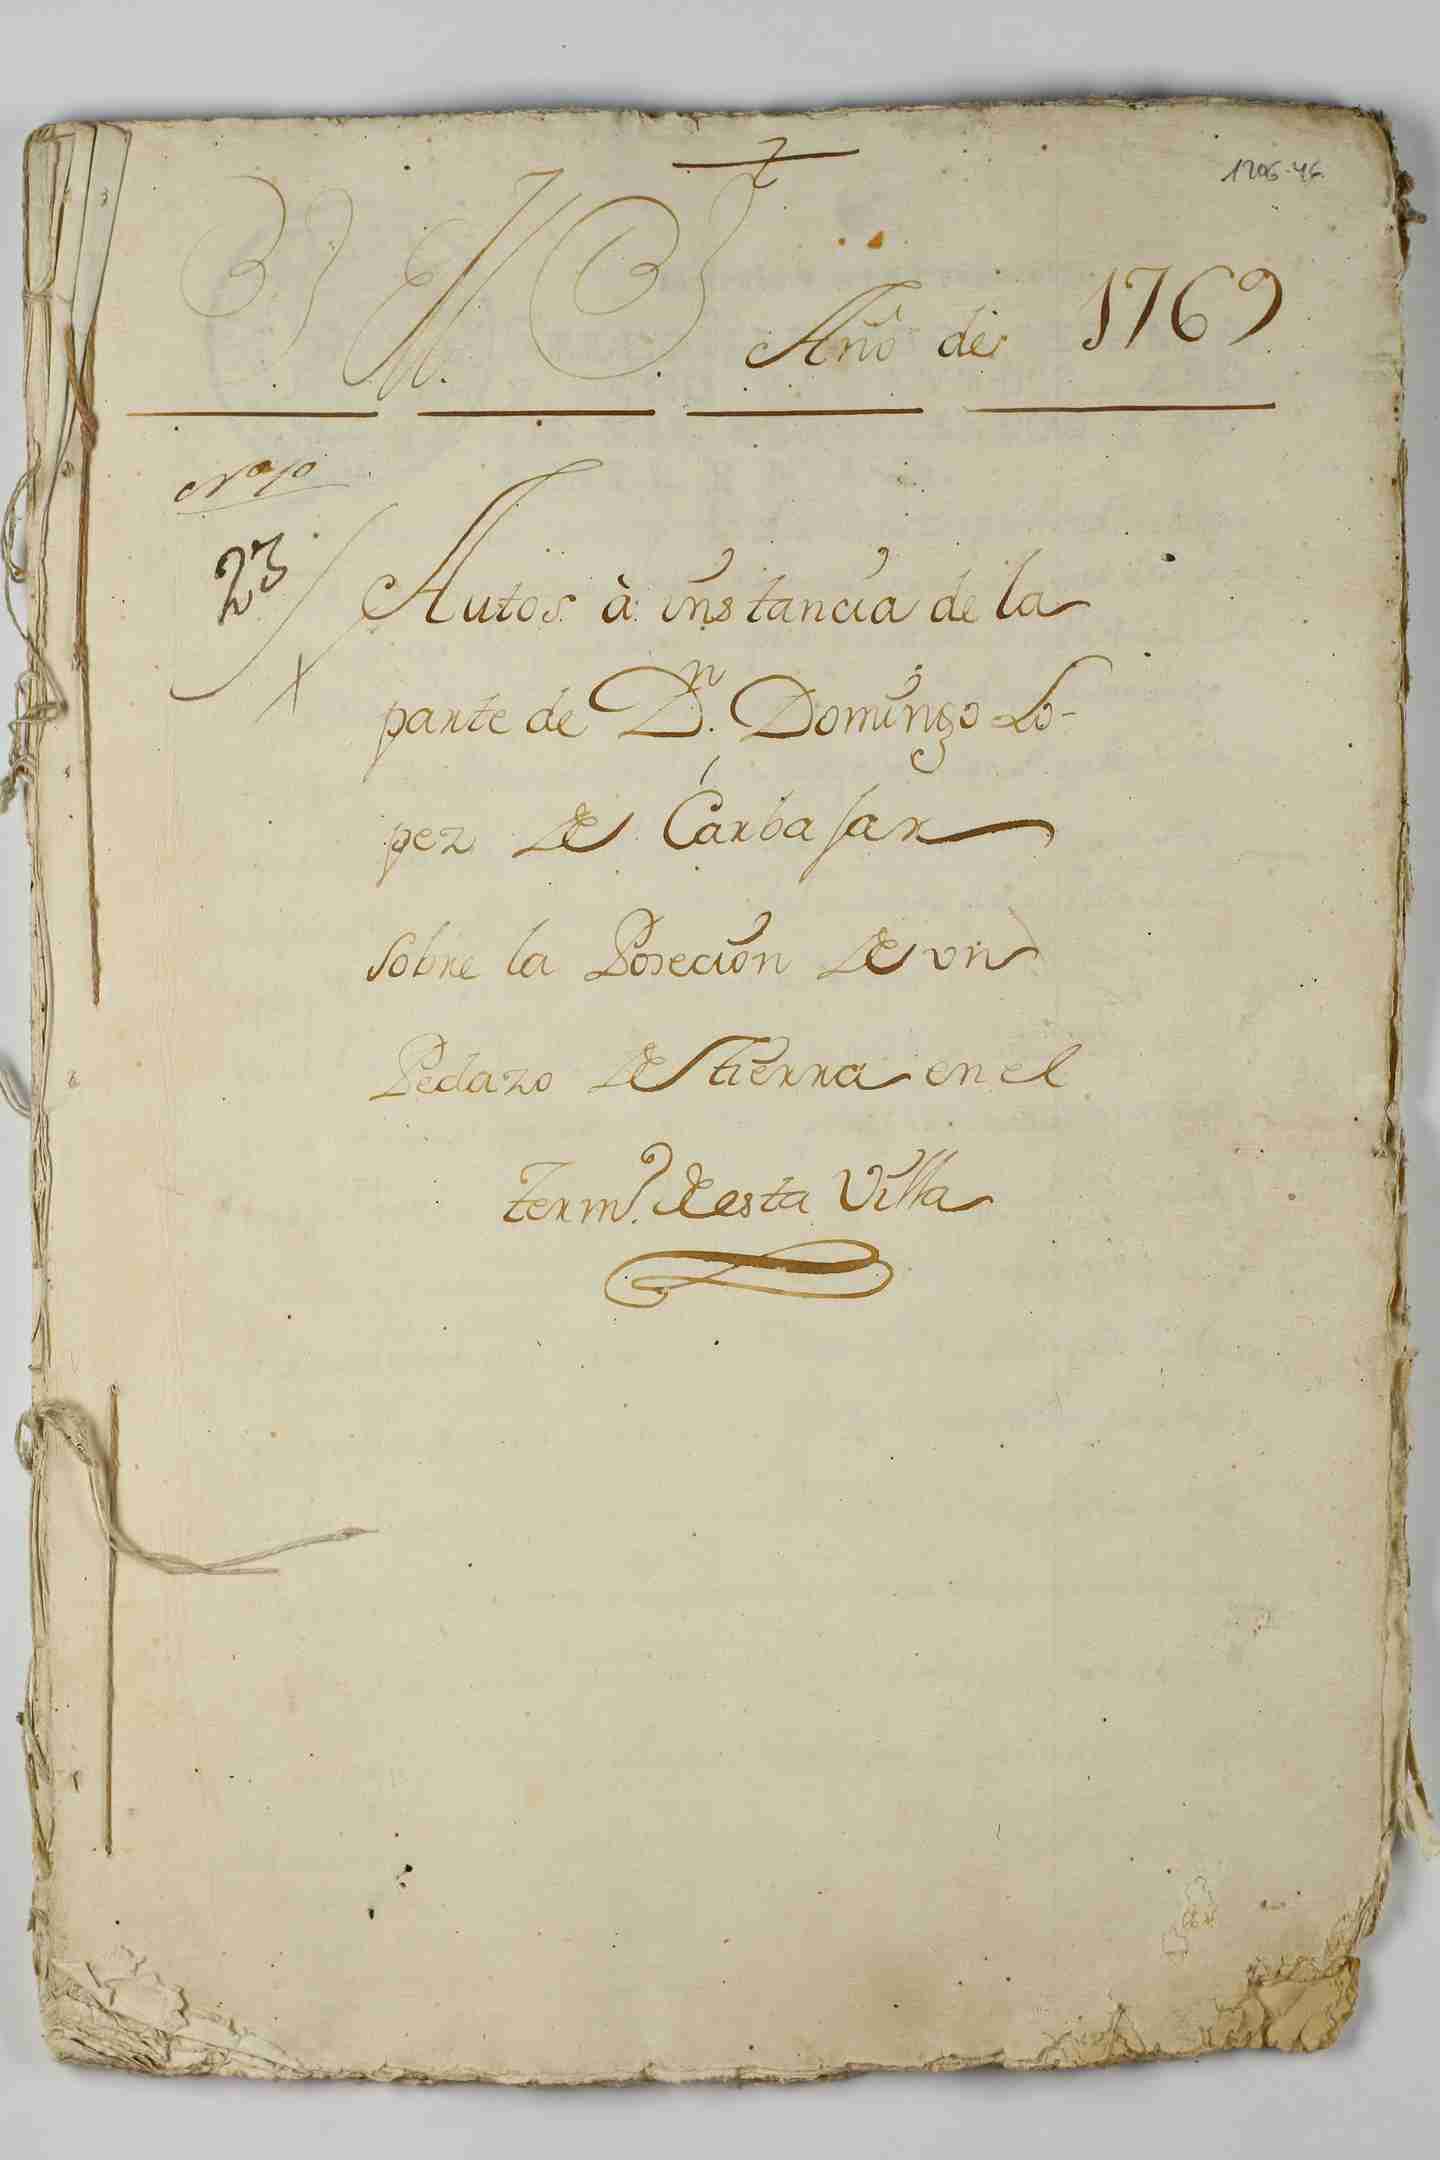 1206-46
Año de 1769
23
Autos à instancia de la
parte de Dn. Domingo Lo-
pez de Carbajar
sobre la Posecion de vn
Pedazo de tierra en el
Termo. de esta Villa